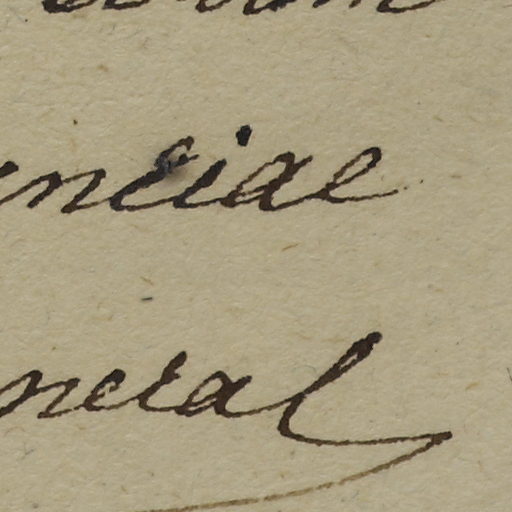 nciae
neral